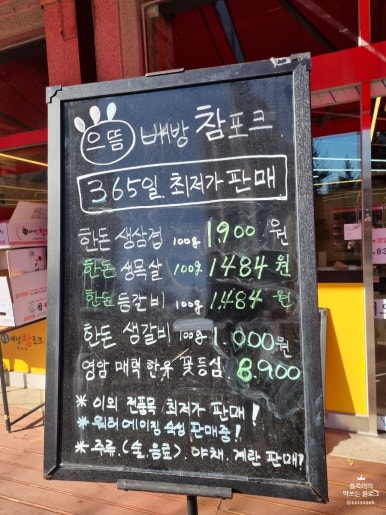 으뜸 배방 참포크
365일 최저가 판매
한돈 생삼겹 100g 1,900원
한돈 생목살 100g 1484원
한돈 등갈비 100g 1.484원
한돈 생갈비 100g 1.000원
영암 매력한우 꽃등심 8.900
* 이외 전품목 최저가 판매!
* 워터에이징 숙성 판매중!
* 주류.(술.음료). 야채. 계란 판매!